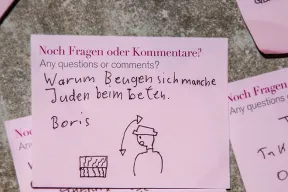 Noch Fragen oder Kommentare?
Any questions or comments?
Warum Beugen sich manche
Juden beim beten.
Boris
Noch Fragen
Any questions
Noch
Any